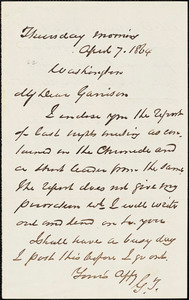 Thursday morning
April 7. 1864
Washington
My Dear Garrison
I enclose you the report
of last nights meeting as con-
tained in the Chronicle and
a short leader from the same.
The report does not give my
peroration wh I will write
out and send on to you
I shall have a busy day
I post this before I go out.
Yours Affy
G.T.